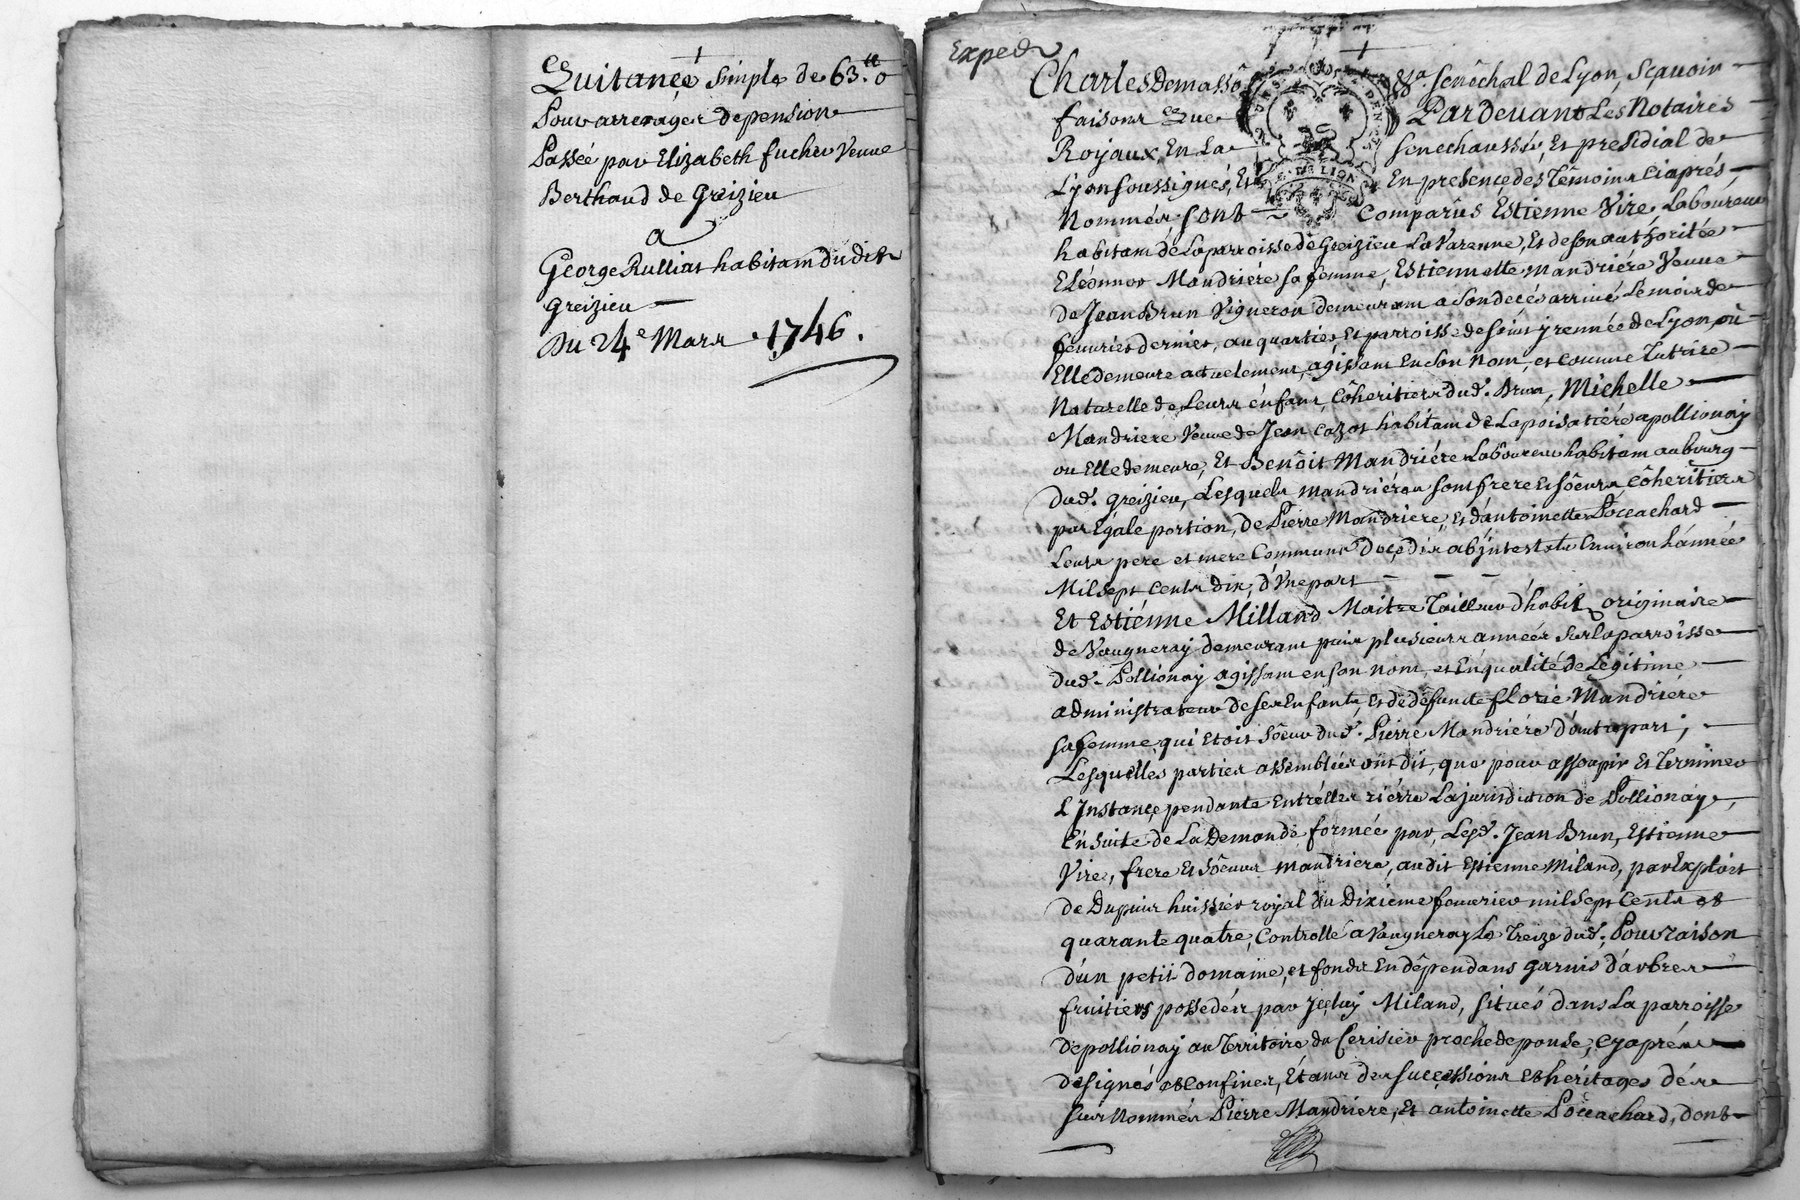 Quitance simple de 63.tt 0
Pour arrerages de pension
Passée par Elizabeth fucher Veuve
Berthaud de Greizieu
a
George Rulliat habitant dudit
Greizieu
Du 24e Mars 1746.
Exped
Charles Demasso Sénêchal de Lyon, Sçavoir
faisons Que Pardevant Les Notaires
Royaux, En La Senechaussée, Et presidial de
Lyon soussignés, Et En presence des Témoins Ciaprés
Nommés, sont Comparûs Estienne Vire Laboureur
habitant de Laparroisse de Greizieu La Varenne, Et de son authoritée
Eléonnor Mandriere sa femme, Estiennette Mandriére Veuve
De Jean Brun Vigneron demeurant a son decés arrivé Le mois de
fevurier dernier, au quartier, Et parroisse de saint jrennée de Lyon où
Elle demeure actuelement, agissant En son nom, et comme Tutrice
Naturelle de Leurs énfans, Côheritiers dud. Brun, Michelle
Mandriere Veuve de Jean Cazot habitant de Lapoisatiére apollionay
ou Elle demeure, Et Benôit Mandriére Laboureur habitant au bourg
dud. Greizieu, Lesquels Mandriéres sont frere Et sôeurs Côheritiers
par Egale portion, de Pierre Mandriere, Et d'antoinette Poccachard
Leurs pere et mere Communs decedés abjntestats Environ Lánnée
Mil sept cents dix, d'Une part
Et Estiénne Milland Maitre Tailleur d'habit originaire
de Vaugneray demeurant puis plusieurs années sur laparroisse
dud. Pollionay agissant en son nom, et En qualité de Légitime
administrateur de ses Enfants, Et de défunte florie Mandriére
sa femme qui Etoit sôeur dud. Pierre Mandriére d'autre part;
Lesquelles parties assemblées ont dit, que pour assoupir Et Terminer
L'Jnstançe pendante Entrélles riére La jurisdiction de Pollionay,
En suite de La Demande formée par Lesd. Jean Brun, Estienne
Vire, frere Et sôeurs Mandriere, audit Estienne Miland, par Exploit
de Dupuis huissier royal du Dixiéme fevurier mil sept Cents et
quarante quatre, Controllé a Vaugneray Le Treize dud, Pour raison
d'un petit domaine, et fonds En dépendans garnis d'arbres
fruitiers possedés par Jceluy Miland, situés dans La parroisse
de pollionay au Territoire du Cerisier proche de ponse, cy aprés
designés et Confinés, Etant des successions Et heritages dés
sus Nommés Pierre Mandriere, Et antoinette Poccachard, dont